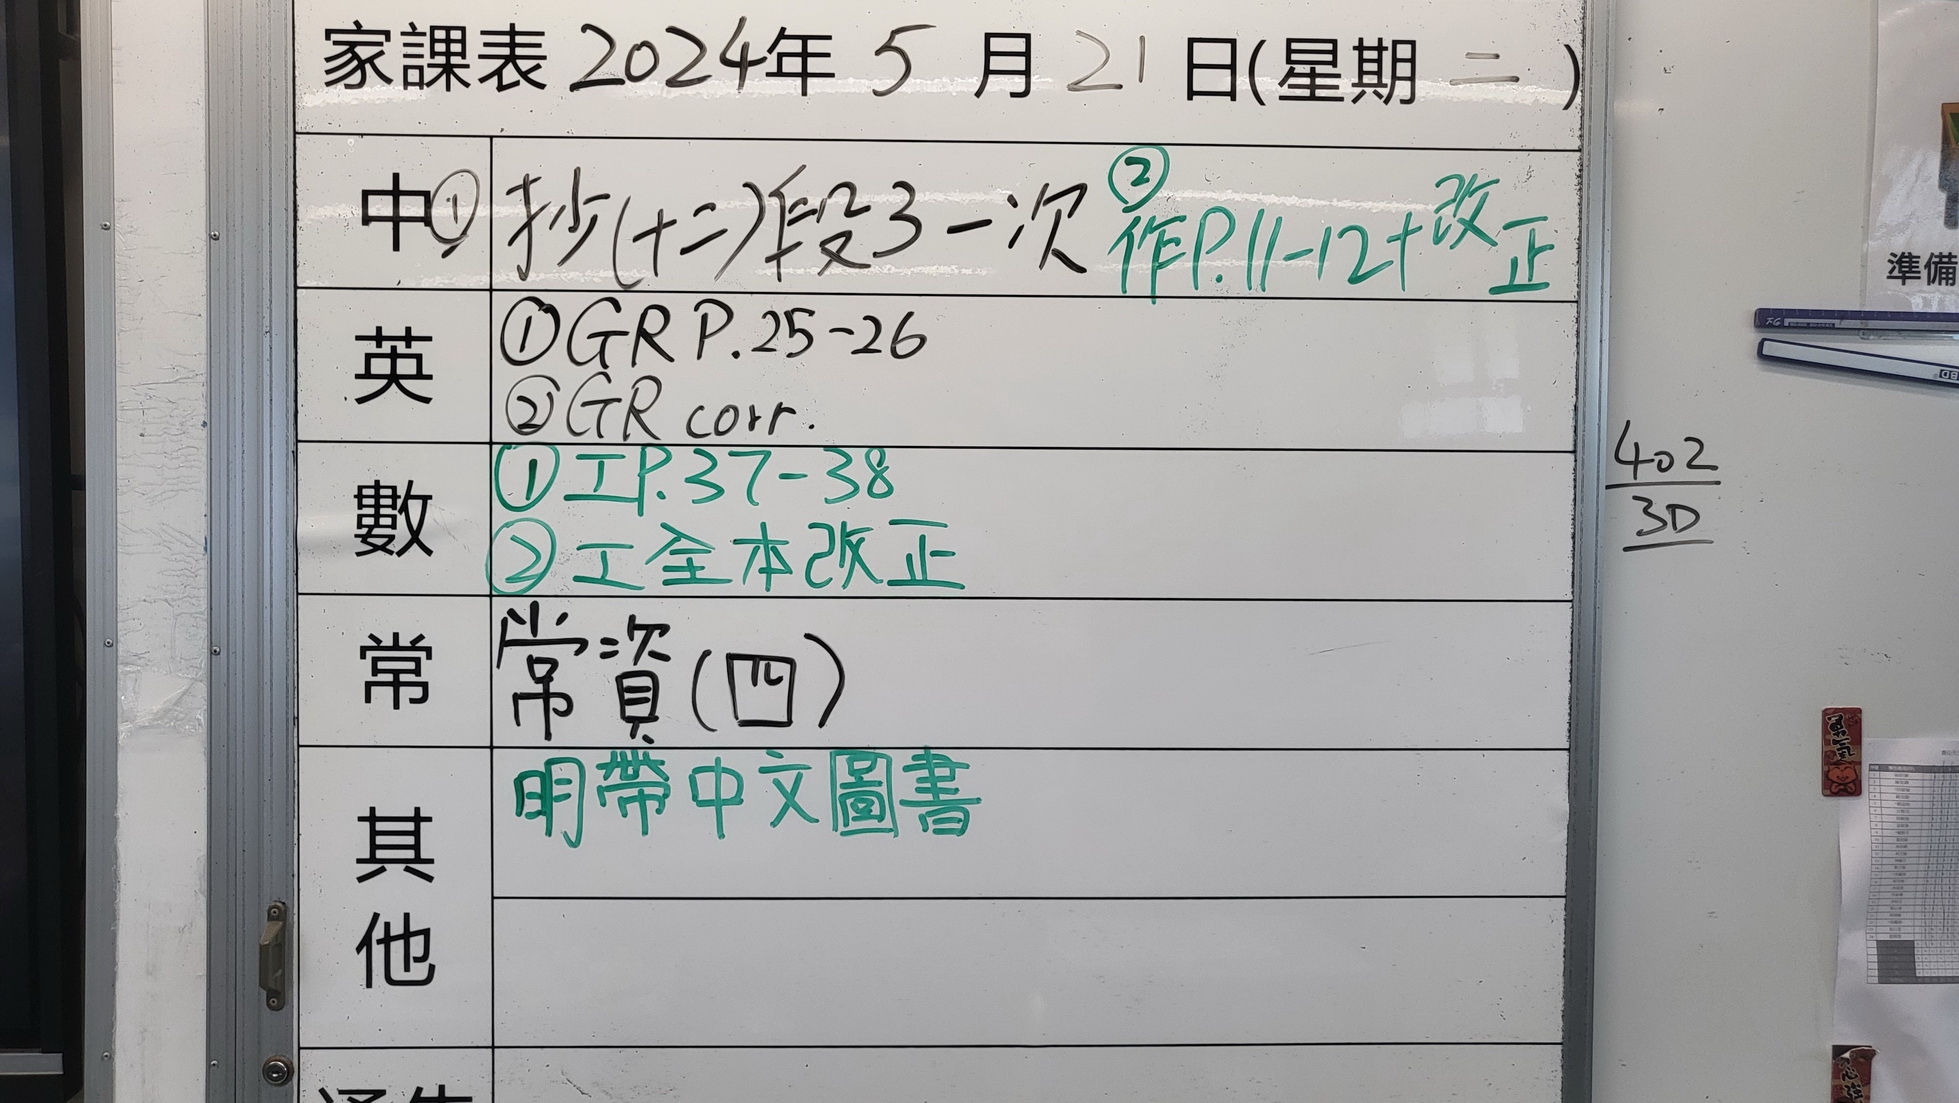 家課表 2024年 5 月 21 日(星期 二 )
中 ① 抄(十二)段3一次 ② 作P.11-12+改正
英 ① GR P.25-26
② GR corr.
數 ① 工P.37-38
② 工全本改正
常 常資(四)
其他 明帶中文圖書
402
3D
準備
勇氣